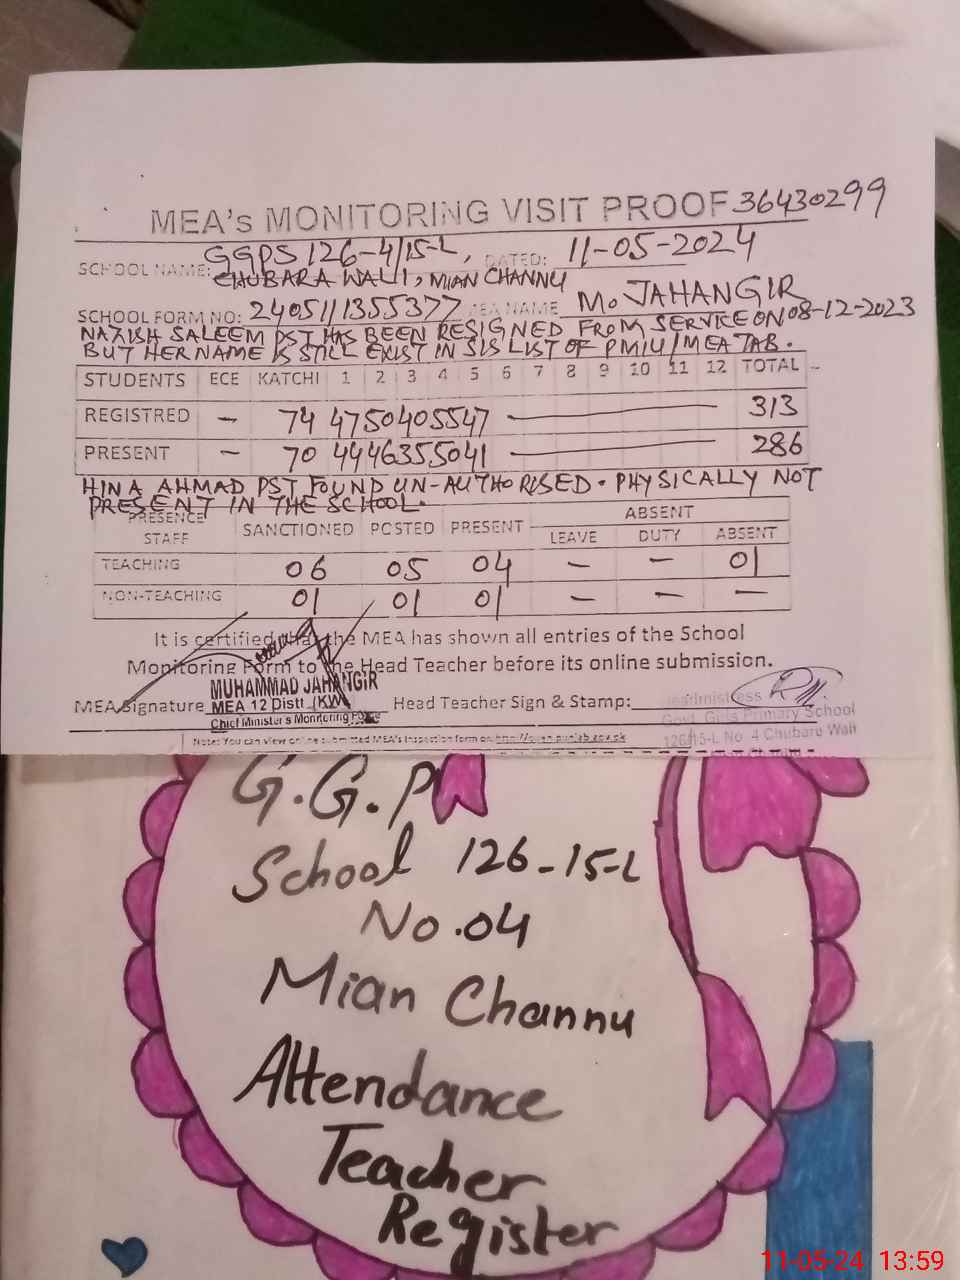 MEA's MONITORING VISIT PROOF 36430299
SCHOOL NAME: GGPS 126-4/15-L, DATED: 11-05-2024
CHUBARA WALI, MIAN CHANNU
SCHOOL FORM NO: 2405111355377 MEA NAME M. JAHANGIR
NAZISH SALEEM PST HAS BEEN RESIGNED FROM SERVICE ON 08-12-2023
BUT HER NAME IS STILL EXIST IN SIS LIST OF PMIU/MEA TAB.
STUDENTS ECE KATCHI 1 2 3 4 5 6 7 8 9 10 11 12 TOTAL
REGISTRED - 74 47 50 40 55 47 - 313
PRESENT - 70 44 46 35 50 41 - 286
HINA AHMAD PST FOUND UN-AUTHORISED. PHYSICALLY NOT
PRESENT IN THE SCHOOL.
PRESENCE STAFF SANCTIONED POSTED PRESENT ABSENT
LEAVE DUTY ABSENT
TEACHING 06 05 04 - - 01
NON-TEACHING 01 01 01 - - -
It is certified that the MEA has shown all entries of the School
Monitoring Form to the Head Teacher before its online submission.
MUHAMMAD JAHANGIR
MEA Signature MEA 12 Distt (KW) Head Teacher Sign & Stamp: Headmistress
Chief Minister's Monitoring Force Govt. Girls Primary School
Note: You can view online submitted MEA's inspection form on 126/15-L No. 4 Chubara Wali
G.G.P
School 126-15-L
No.04
Mian Channu
Attendance
Teacher
Register
11-05-24 13:59